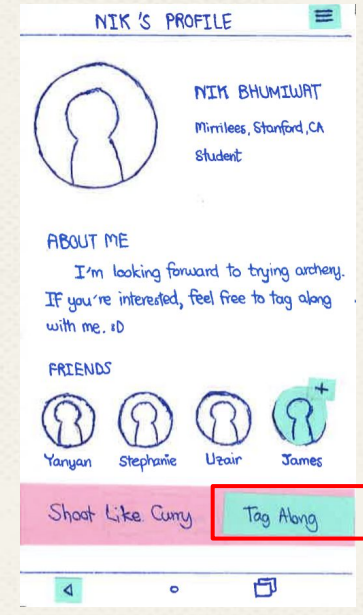 NIK'S PROFILE
NIK BHUMIWAT
Mirrilees, Stanford, CA
Student
ABOUT ME
I'm looking forward to trying archery.
If you're interested, feel free to tag along
with me. :D
FRIENDS
Yanyan Stephanie Uzair James
Shoot Like Curry Tag Along